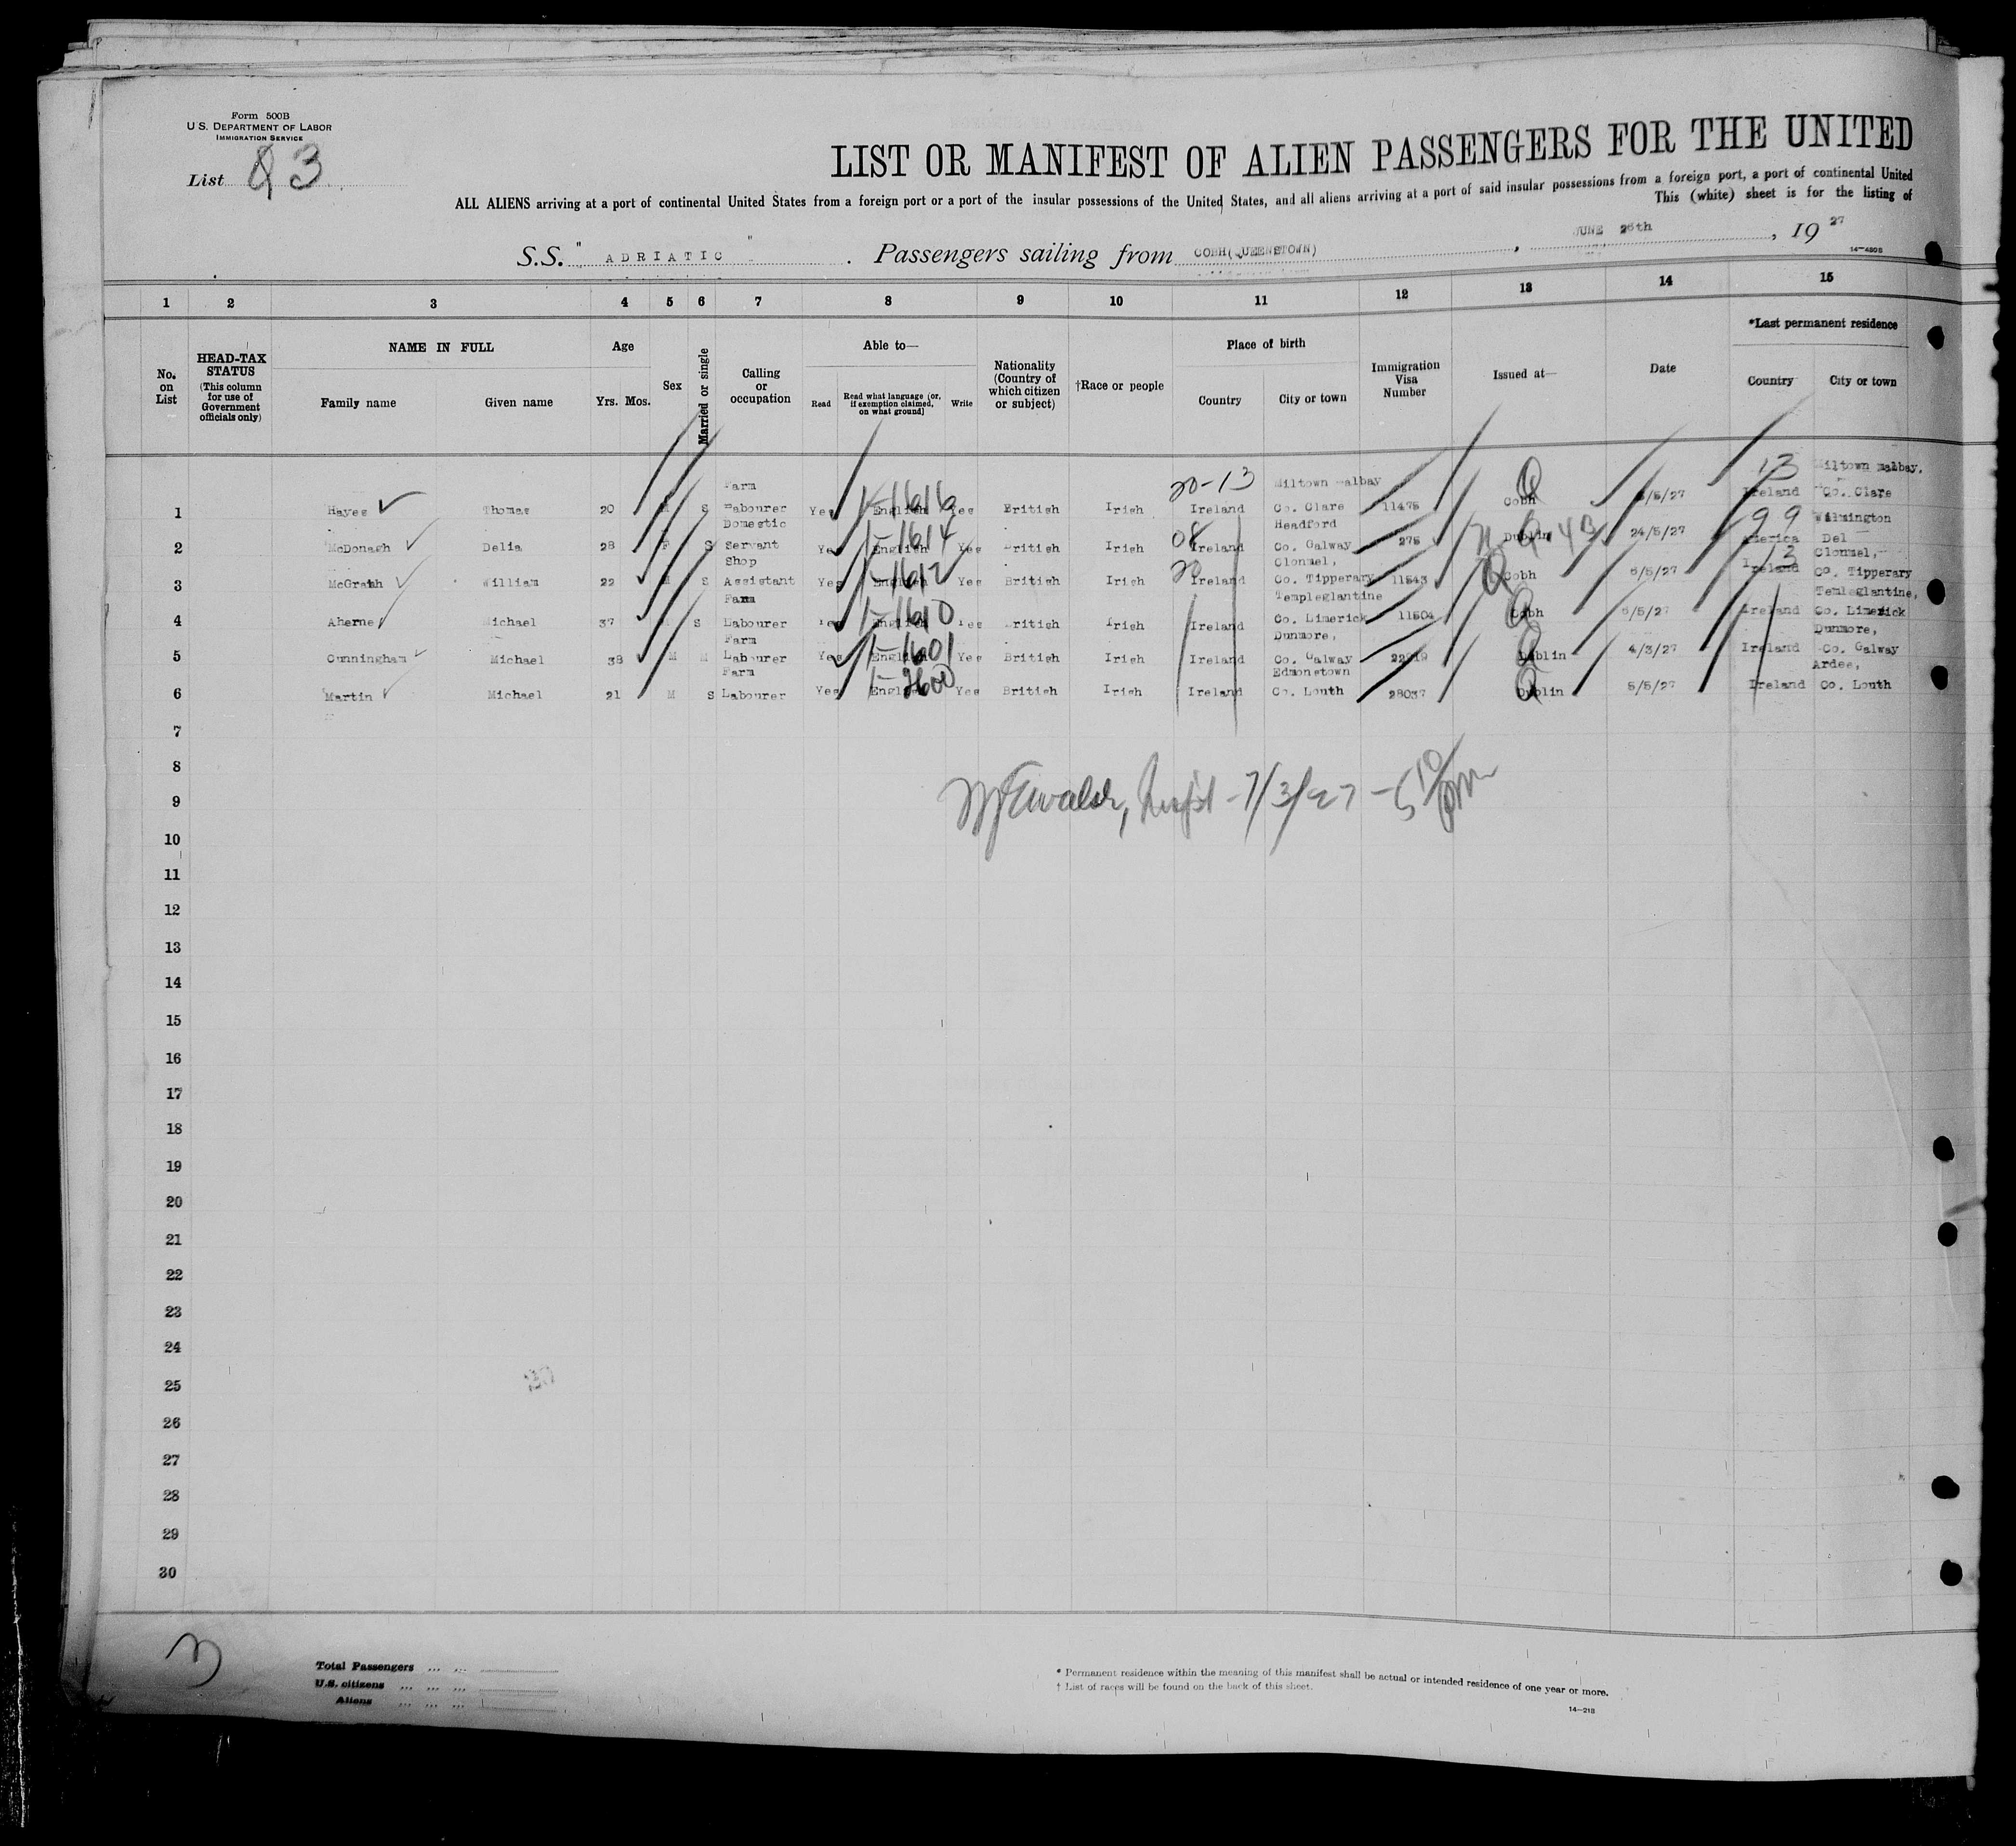 Form 500B
U.S. DEPARTMENT OF LABOR
IMMIGRATION SERVICE
List 3
LIST OR MANIFEST OF ALIEN PASSENGERS FOR THE UNITED
ALL ALIENS arriving at a port of continental United States from a foreign port or a port of the insular possessions of the United States, and all aliens arriving at a port of said insular possessions from a foreign port, a port of continental United
This (white) sheet is for the listing of
S.S. " ADRIATIC " . Passengers sailing from COBH(QUEENSTOWN) , JUNE 26th , 19 27
14—480B
1 2 3 4 5 6 7 8 9 10 11 12 13 14 15
No. on List
HEAD-TAX STATUS (This column for use of Government officials only)
NAME IN FULL
Family name Given name
Age
Yrs. Mos.
Sex
Married or single
Calling or occupation
Able to—
Read Read what language (or, if exemption claimed, on what ground) Write
Nationality (Country of which citizen or subject)
†Race or people
Place of birth
Country City or town
Immigration Visa Number
Issued at—
Date
*Last permanent residence
Country City or town
1 Hayes Thomas 20 M S Farm Labourer Yes English Yes British Irish Ireland Miltown Malbay Co. Clare 11475 Cobh 5/5/27 Ireland Miltown Malbay, Co. Clare
1-1616 20-13 13
2 McDonagh Delia 28 F S Domestic Servant Yes English Yes British Irish Ireland Headford Co. Galway 275 Dublin 24/5/27 America Wilmington Del
1-1614 08 99
3 McGrath William 22 M S Shop Assistant Yes English Yes British Irish Ireland Clonmel, Co. Tipperary 11543 Cobh 6/5/27 Ireland Clonmel, Co. Tipperary
1-1612 20 13
4 Aherne Michael 37 M S Farm Labourer Yes English Yes British Irish Ireland Templeglantine Co. Limerick 11504 Cobh 5/5/27 Ireland Temleglantine, Co. Limerick
1-1610
5 Cunningham Michael 38 M M Farm Labourer Yes English Yes British Irish Ireland Dunmore, Co. Galway Dublin 4/3/27 Ireland Dunmore, Co. Galway
1-1601
6 Martin Michael 21 M S Farm Labourer Yes English Yes British Irish Ireland Edmonstown Co. Louth 28037 Dublin 5/5/27 Ireland Ardee, Co. Louth
7
8
9
7/3/27 - 5 10 pm
10
11
12
13
14
15
16
17
18
19
20
21
22
23
24
25
26
27
28
29
30
3
Total Passengers ... ...
U.S. citizens ... ... ...
Aliens ... ... ...
* Permanent residence within the meaning of this manifest shall be actual or intended residence of one year or more.
† List of races will be found on the back of this sheet.
14—218